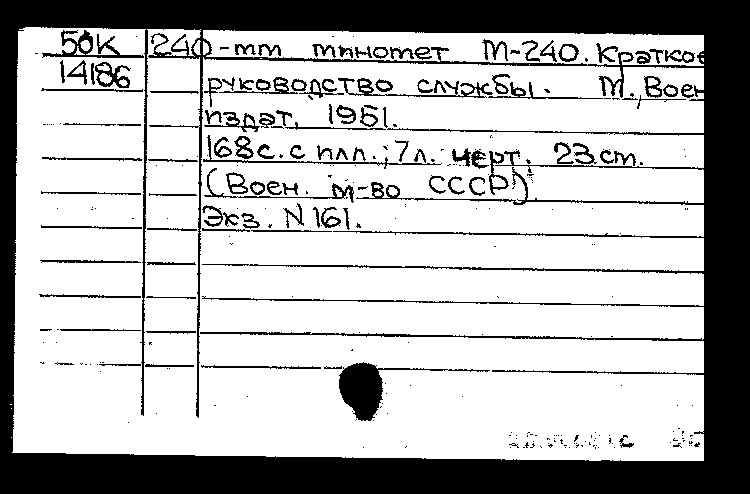 50К 240-мм миномет М-240. Краткое
14186 руководство службы. М., Воен
издат, 1951.
168с. с илл.; 7л. черт. 23.см.
(Воен. м-во СССР)
Экз. N 161.